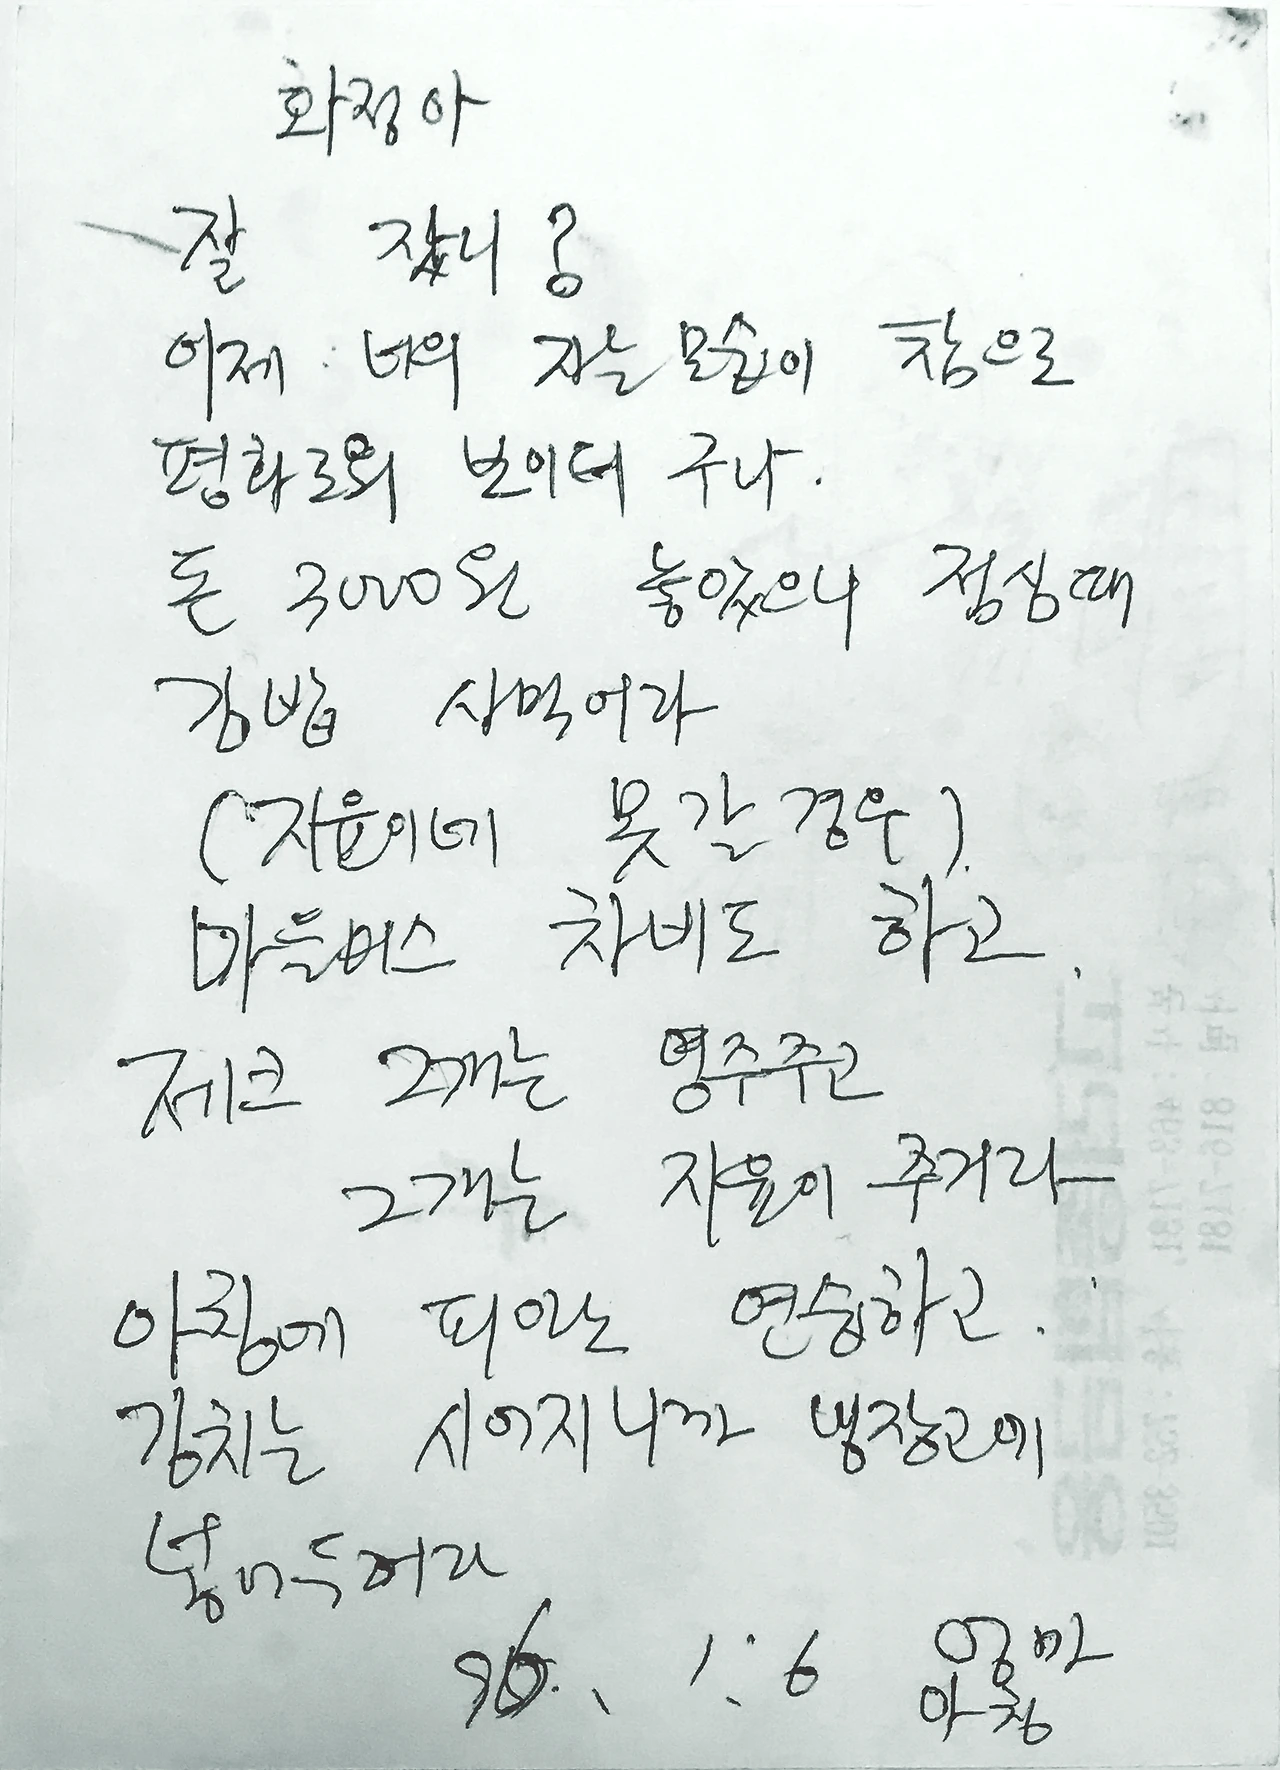 화정아
잘 잤니?
어제 너의 자는 모습이 참으로
평화로워 보이더구나.
돈 3000원 놓았으니 점심때
김밥 사먹어라
(자윤이네 못갈 경우)
마을버스 차비도 하고.
제크 2개는 영주주고
2개는 자윤이 주거라
아침에 피아노 연습하고.
김치는 시어지니까 냉장고에
넣어두어라
96. 1. 6 엄마
아침
본사 : 463-7181,
서면 : 816-7181